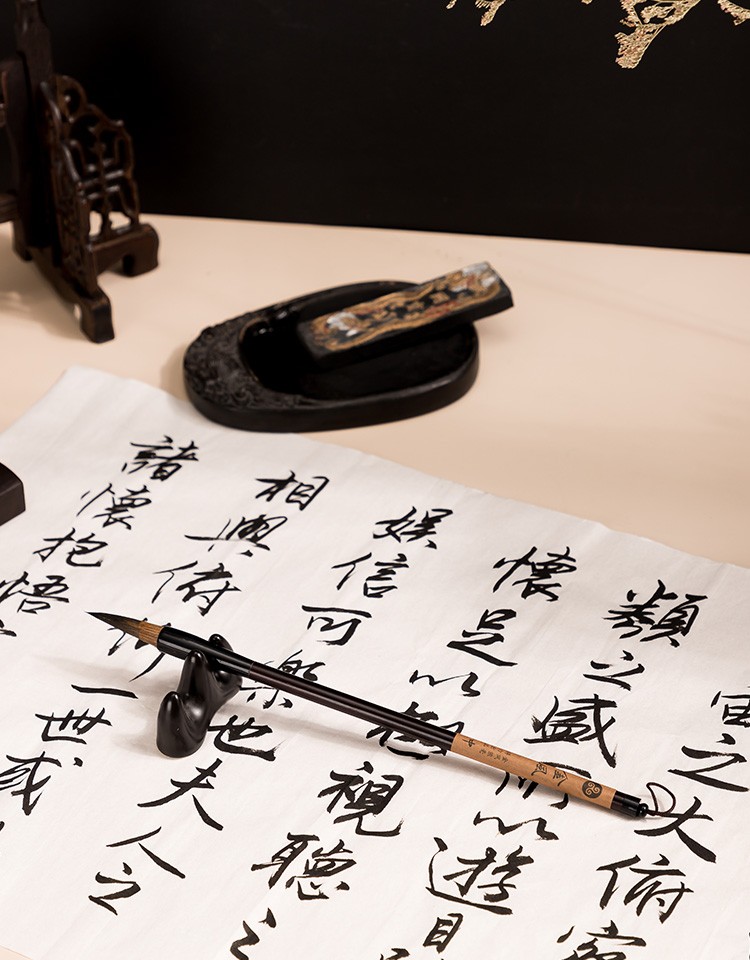 宙之大俯察
類之盛所以遊目
懷足以極視聽之
娛信可樂也夫人之
相與俯仰一世或
諸懷抱悟